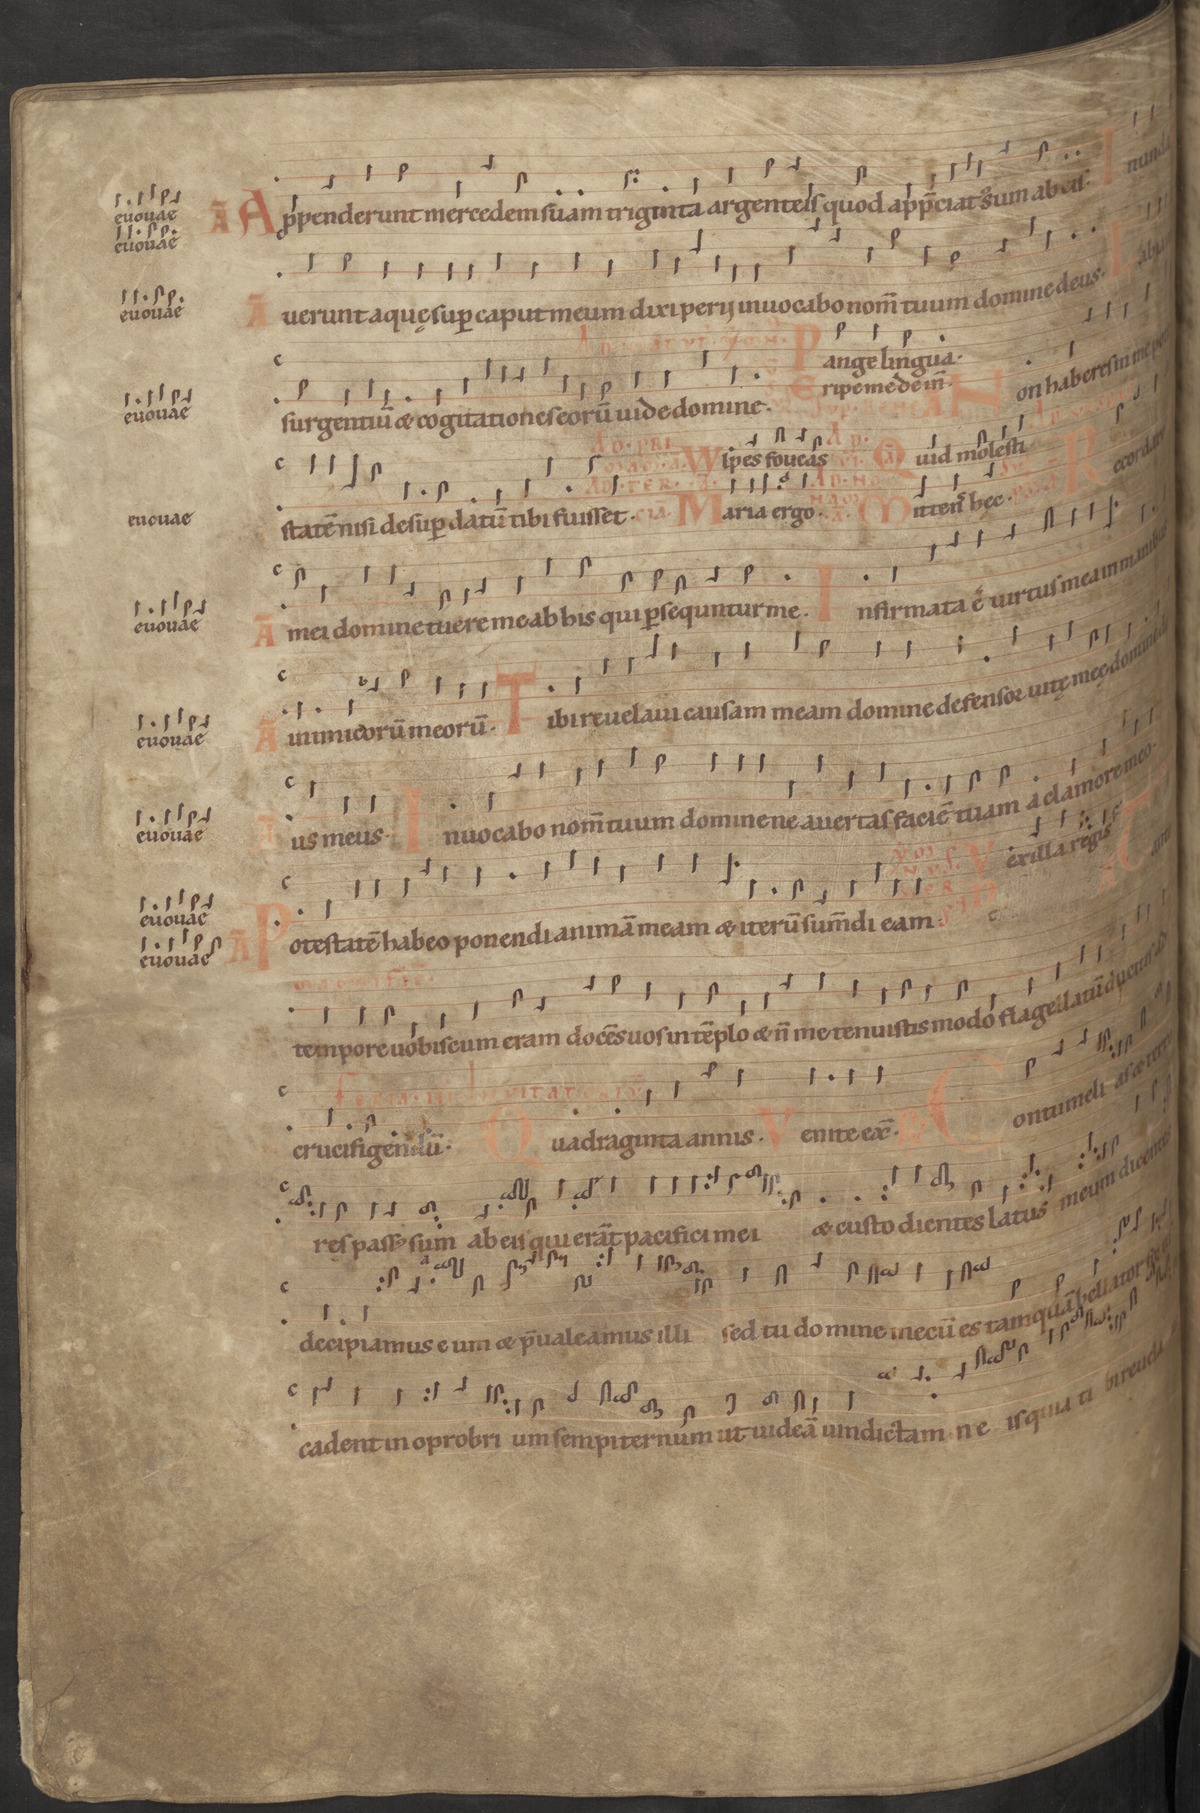 euouae
euouae
A Appenderunt mercedem suam triginta argenteis quod app̄ciatus sum ab eis. Inunda
euouae
A uerunt aquę sup caput meum dixi perij inuocabo nom̄ tuum domine deus. L
P ange lingua.
E ripe me de in̄
euouae
surgentiū & cogitationes eorū uide domine. N on haberes in me
AD PRI
W lpes foueas Q uid molesti
AD TER
euouae
statē nisi desup datū tibi fuisset. M aria ergo. M ittens hec. R ecordare
euouae
A mei domine tuere me ab his qui psequntur me. I nfirmata ē uirtus mea in manibus
euouae
A inimicorū meorū. T ibi reuelaui causam meam domine defensor uitę meę domine
euouae
A us meus. I nuocabo nom̄ tuum domine ne auertas faciē tuam a clamore meo.
V exilla regis
euouae
euouae
A P otestatē habeo ponendi animā meam & iterū sum̄di eam.
tempore uobiscum eram docēs uos in tēplo & n̄ me tenuistis modo flagellatū ducitis ad
Feria iii Inuitatoriū
crucifigendū. Q uadraginta annis. V enite ex̄. C ontumeli as & terro
res passus sum ab eis qui erāt pacifici mei & custodientes latus meum dicentes
decipiamus eum & p̄ualeamus illi sed tu domine mecū es tamquā bellator
cadent in opprobri um sempiternum ut uideā uindictam in e is quia ti bi reuela